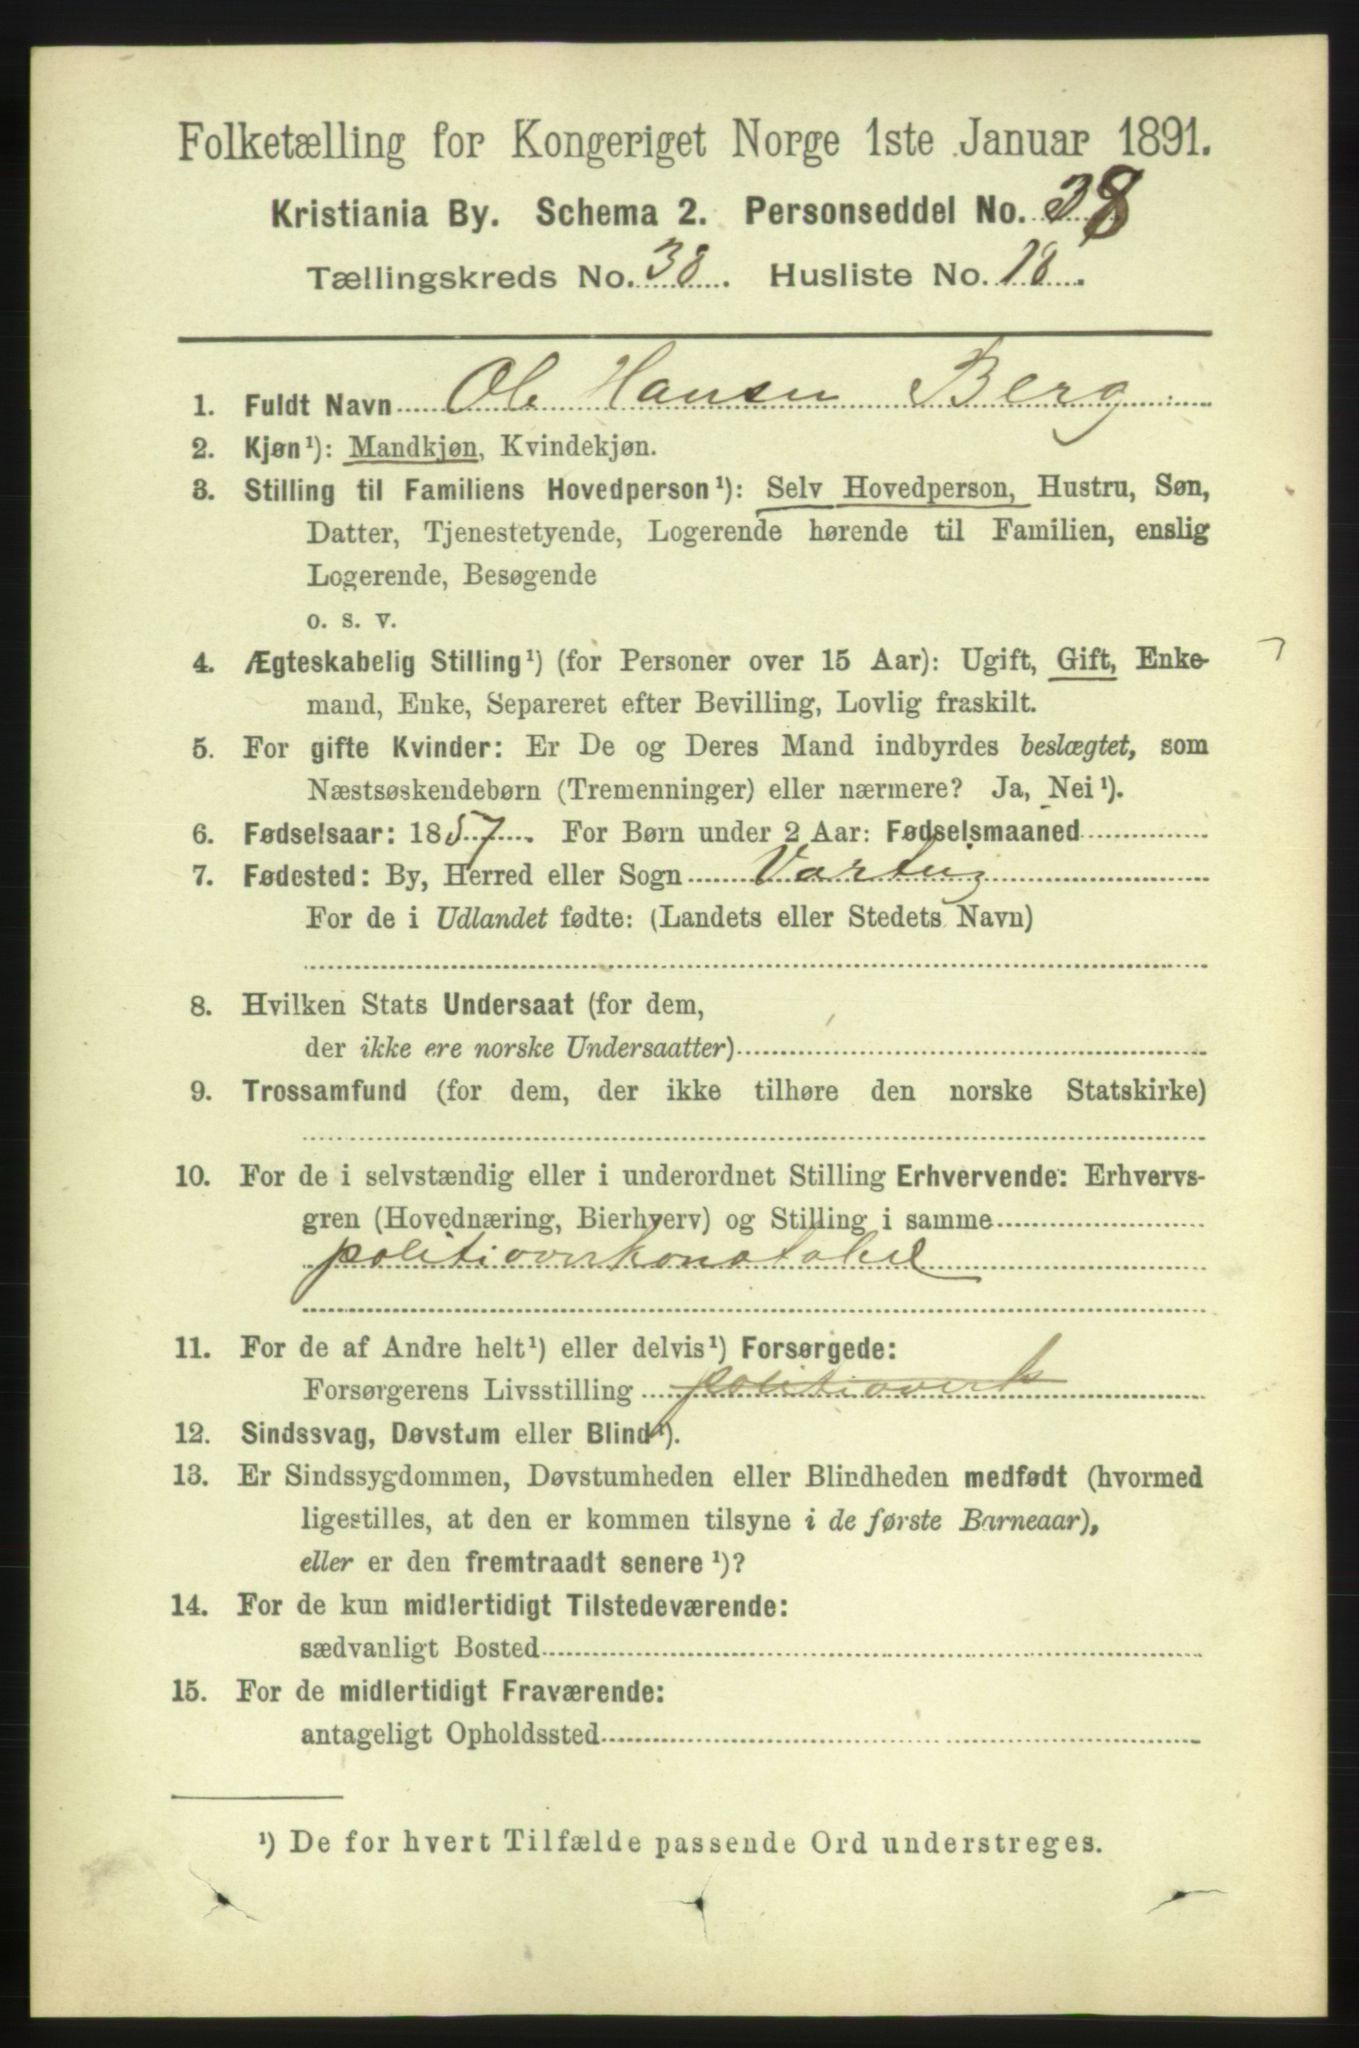 Folketælling for Kongeriget Norge 1ste Januar 1891.
Kristiania By. Schema 2. Personseddel No. 38
Tællingskreds No. 38. Husliste No. 18.
1. Fuldt Navn Ole Hansen Berg
2. Kjøn¹): Mandkjøn, Kvindekjøn.
3. Stilling til Familiens Hovedperson¹): Selv Hovedperson, Hustru, Søn,
Datter, Tjenestetyende, Logerende hørende til Familien, enslig
Logerende, Besøgende
o. s. v.
4. Ægteskabelig Stilling¹) (for Personer over 15 Aar): Ugift, Gift, Enke-
mand, Enke, Separeret efter Bevilling, Lovlig fraskilt.
5. For gifte Kvinder: Er De og Deres Mand indbyrdes beslægtet, som
Næstsøskendebørn (Tremenninger) eller nærmere? Ja, Nei¹).
6. Fødselsaar: 1857. For Børn under 2 Aar: Fødselsmaaned
7. Fødested: By, Herred eller Sogn Varteig
For de i Udlandet fødte: (Landets eller Stedets Navn)
8. Hvilken Stats Undersaat (for dem,
der ikke ere norske Undersaatter)
9. Trossamfund (for dem, der ikke tilhøre den norske Statskirke)
10. For de i selvstændig eller i underordnet Stilling Erhvervende: Erhvervs-
gren (Hovednæring, Bierhverv) og Stilling i samme
politioverkonstabel
11. For de af Andre helt¹) eller delvis¹) Forsørgede:
Forsørgerens Livsstilling politioverk
12. Sindssvag, Døvstum eller Blind¹).
13. Er Sindssygdommen, Døvstumheden eller Blindheden medfødt (hvormed
ligestilles, at den er kommen tilsyne i de første Barneaar),
eller er den fremtraadt senere¹)?
14. For de kun midlertidigt Tilstedeværende:
sædvanligt Bosted
15. For de midlertidigt Fraværende:
antageligt Opholdssted
¹) De for hvert Tilfælde passende Ord understreges.